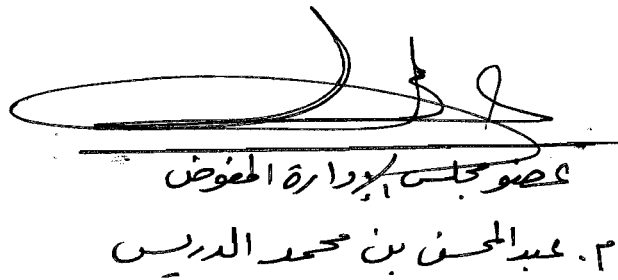 عضو مجلس الإدارة المفوض
م. عبدالمحسن بن محمد الدريس